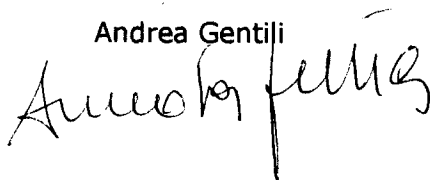 Andrea Gentili